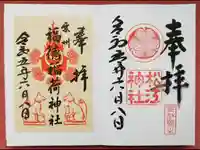 奉拝
松江神社
令和五年六月八日
奉拝
福徳稲荷神社
令和五年六月八日